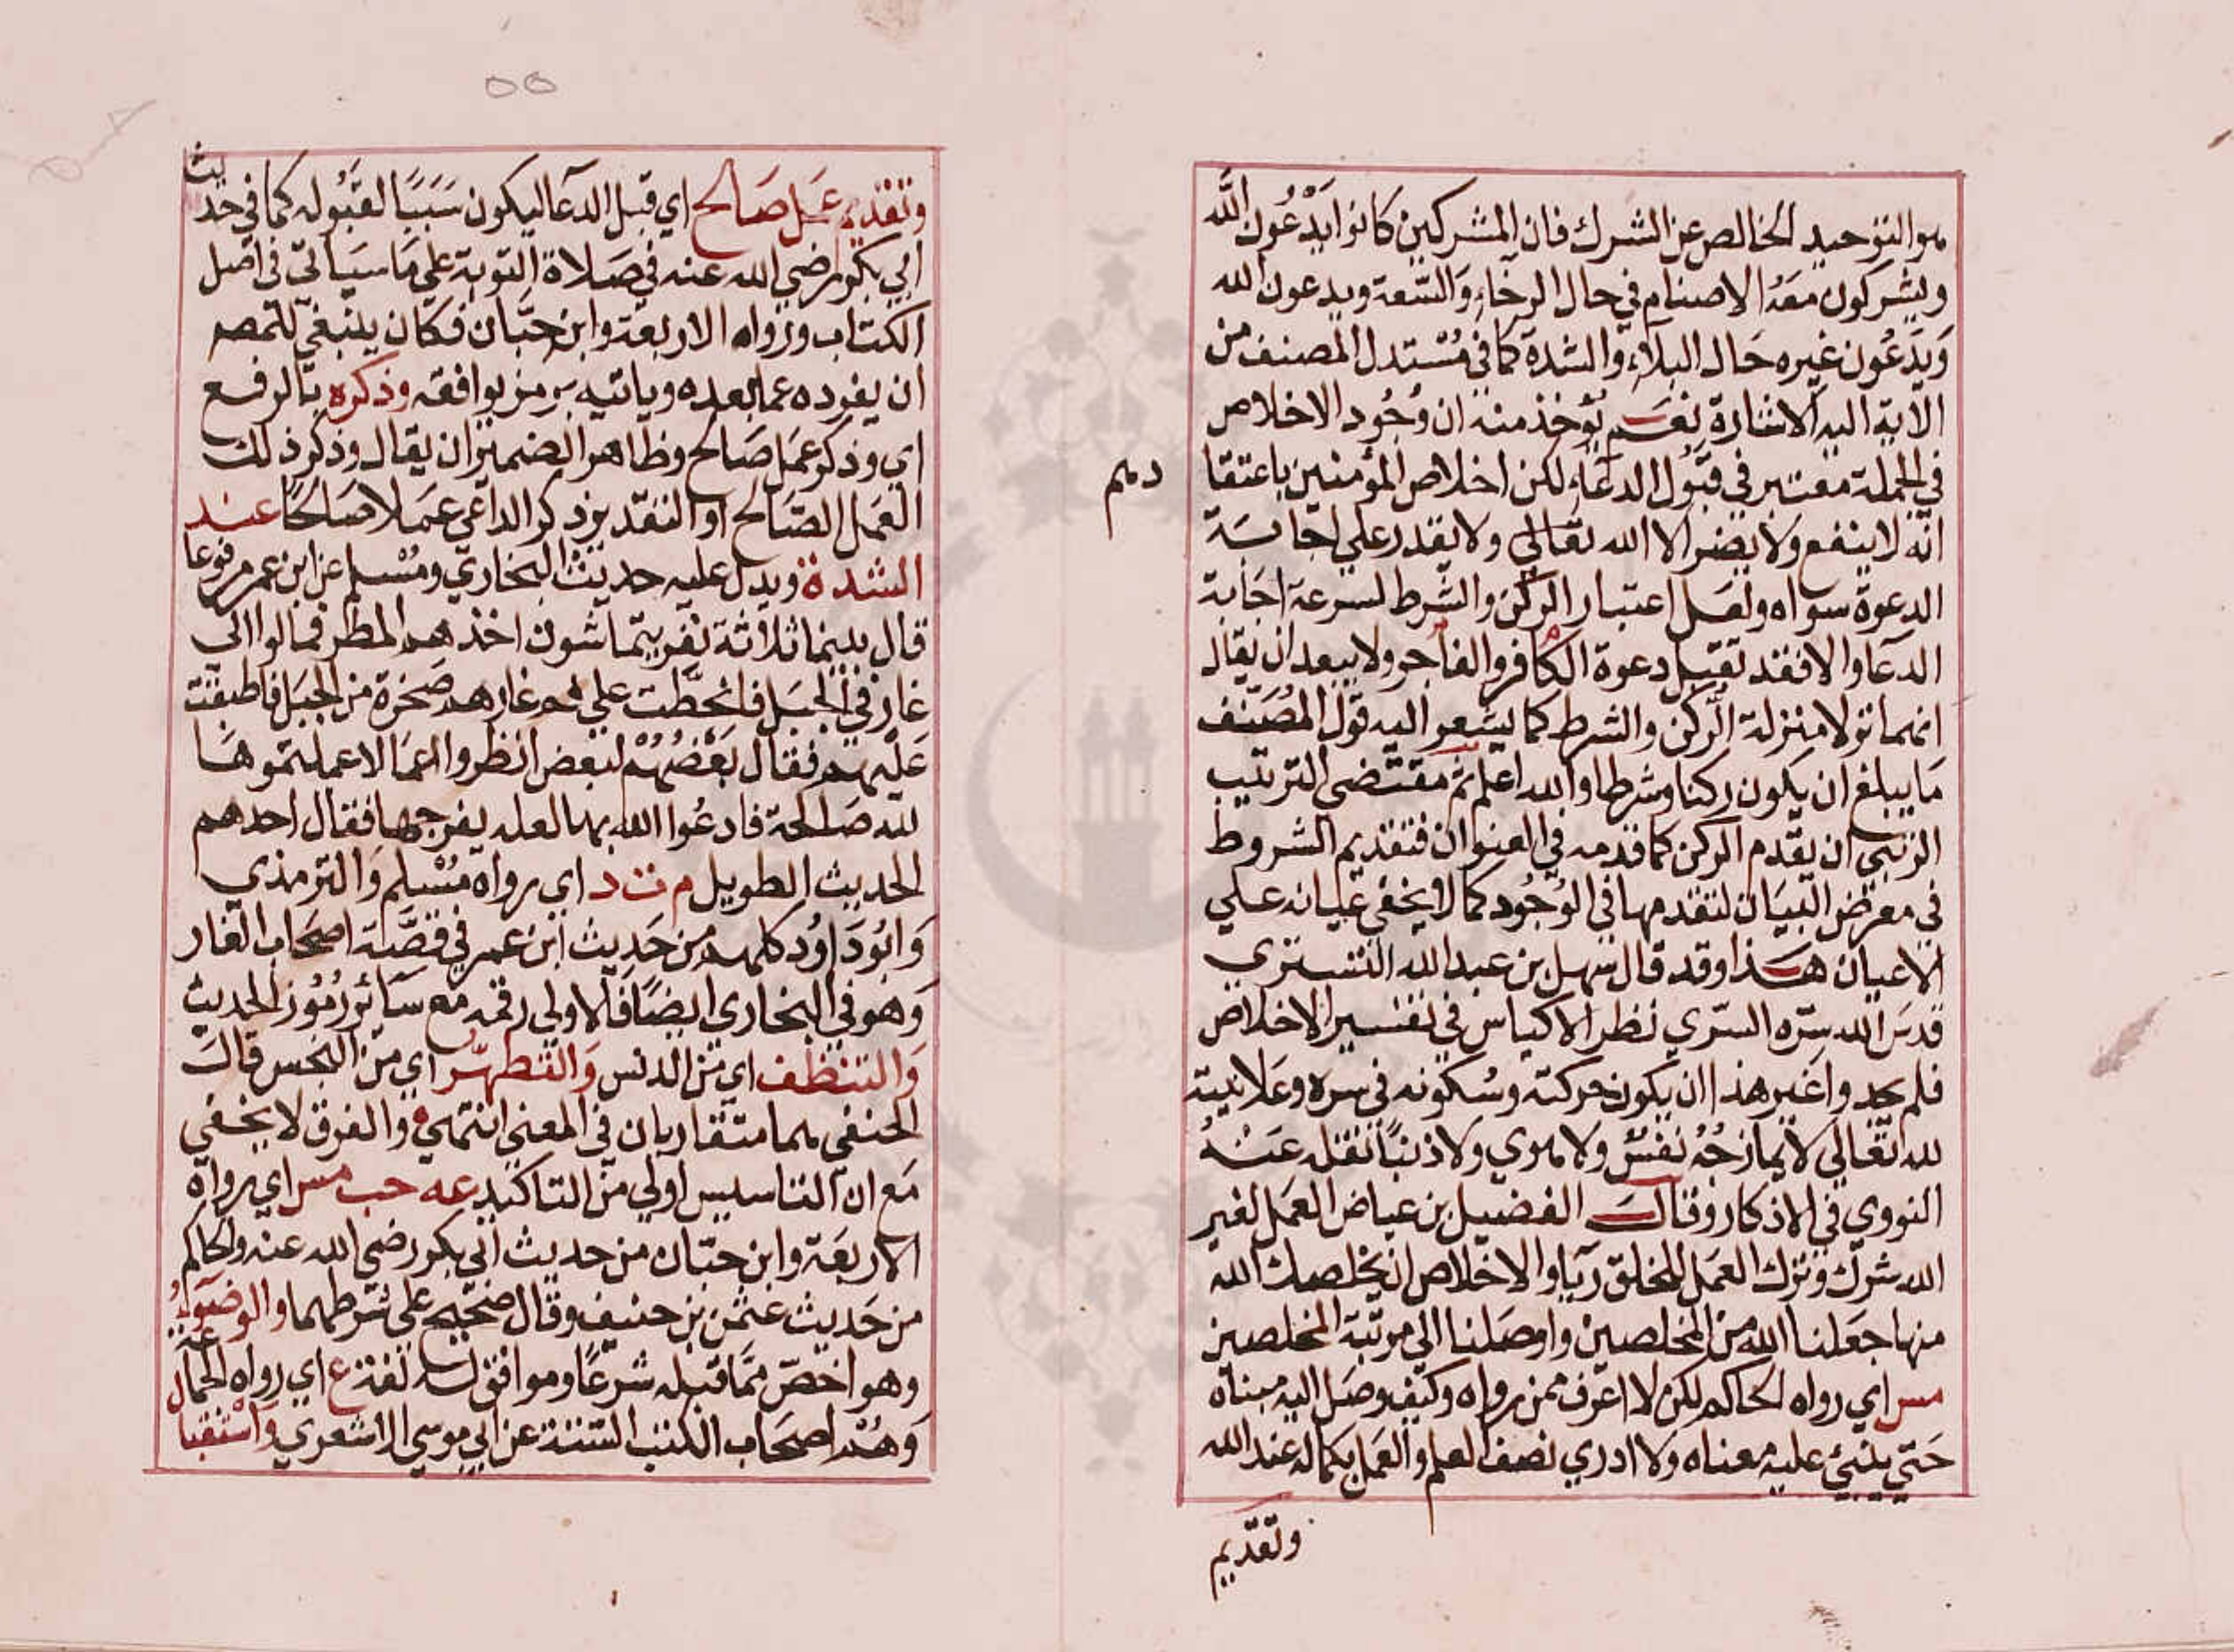 هو التوحيد الخالص عن الشرك فان المشركين كانوا يدعون الله
ويشركون معه الاصنام في حال الرخاء والسعة ويدعون الله
ويدعون غيره حال البلاء والشدة كما في مستدل المصنف من
الاية اليه الاشارة نعم يؤخذ منه ان وجود الاخلاص
في الجملة معتبر في قبول الدعاء لكن اخلاص المؤمنين باعتقا
دهم
انه لا ينفع ولا يضر الا الله تعالى ولا يقدر علي اجابة
الدعوة سواه ولعل اعتبار الركن والشرط لسرعة اجابة
الدعا والا فقد تقبل دعوة الكافر والفاجر ولا يبعد ان يقال
انهما نزلا منزلة الركن والشرط كما يشعر اليه قول المصنف
ما يبلغ ان يكون ركنا وشرطا والله اعلم ثم مقتضي الترتيب
الرتبي ان يقدم الركن كما قدمه في العنوان فتقديم الشروط
في معرض البيان لتقدمها في الوجود كما لا يخفي عيانه علي
الاعيان هذا وقد قال سهل بن عبد الله التستري
قدس الله سره السري نظر الاكياس في تفسير الاخلاص
فلم يجدوا غير هذا ان يكون حركته وسكونه في سره وعلانيته
لله تعالي لا يمازجه نفس ولا هوي ولا دنيا نقله عنه
النووي في الاذكار وقال الفضيل بن عياض العمل لغير
الله شرك وترك العمل للخلق ريا والاخلاص ان يخلصك الله
منها جعلنا الله من المخلصين واوصلنا الي مرتبة المخلصين
مس اي رواه الحاكم لكن لا اعرف ممن رواه وكيف وصل اليه مبناه
حتي يبني عليه معناه ولا ادري نصف العلم والعمل بكماله عند الله
وتقديم
٥٥
وتقديم عمل صالح اي قبل الدعا ليكون سببا لقبوله كما في حديث
ابي بكر رضي الله عنه في صلاة التوبة علي ما سياتي في اصل
الكتاب ورواه الاربعة وابن حبان فكان ينبغي للمص
ان يفرده عما بعده وياتيه برمز يوافقه وذكره بالرفع
اي وذكر عمل صالح وظاهر الضمير ان يقال وذكر ذلك
العمل الصالح او التقدير ذكر الداعي عملا صالحا عند
الشدة ويدل عليه حديث البخاري ومسلم عن ابن عمر مرفوعا
قال بينما ثلاثة نفر يتماشون اخذهم المطر فمالوا الى
غار في الجبل فانحطت علي فم غارهم صخرة من الجبل فاطبقت
عليهم فقال بعضهم لبعض انظروا اعمالا عملتموها
لله صالحة فادعوا الله بها لعله يفرجها فقال احدهم
الحديث الطويل م ت د اي رواه مسلم والترمذي
وابو داود كلهم من حديث ابن عمر في قصة اصحاب الغار
وهو في البخاري ايضا فالاولي رقمه مع سائر رموز الحديث
والتنظف اي من الدنس والتطهر اي من النجس قال
الحنفي هما متقاربان في المعني انتهي والفرق لا يخفي
مع ان التاسيس اولي من التاكيد عه حب مس اي رواه
الاربعة وابن حبان من حديث ابي بكر رضي الله عنه والحاكم
من حديث عثمن بن حنيف وقال صحيح على شرطهما والوضوء
وهو اخص مما قبله شرعا وموافق له لغة ع اي رواه الجماعة
وهم اصحاب الكتب الستة عن ابي موسي الاشعري واستقبا